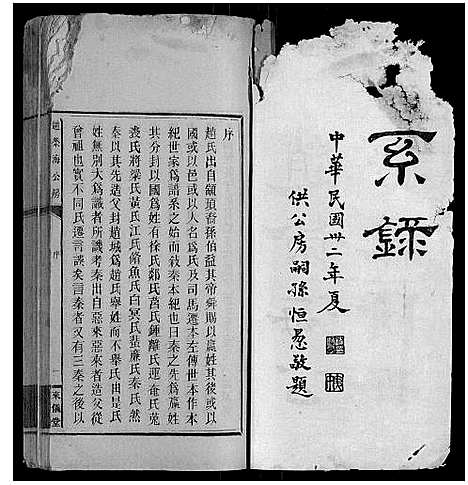 系錄
中華民國卅二年夏
供公房嗣孫恒惖敬題
序
趙氏出自顓頊裔孫伯益其帝舜賜以嬴姓其後或以
國或以邑或以人名爲氏及司馬遷本左傳世本作本
紀世家爲譜系之始而敍秦本紀也曰秦之先爲嬴姓
其分封以國爲姓有徐氏郯氏莒氏鍾離氏運奄氏菟
裘氏將梁氏黃氏江氏脩魚氏白冥氏蜚廉氏秦氏然
秦以其先造父封趙城爲趙氏舉姓而不舉氏由是氏
姓無別大爲識者所譏考秦出自惡來惡來者造父從
曾祖也實不同氏遷言誤矣言秦者又有三秦之後以
序
一
來儀堂